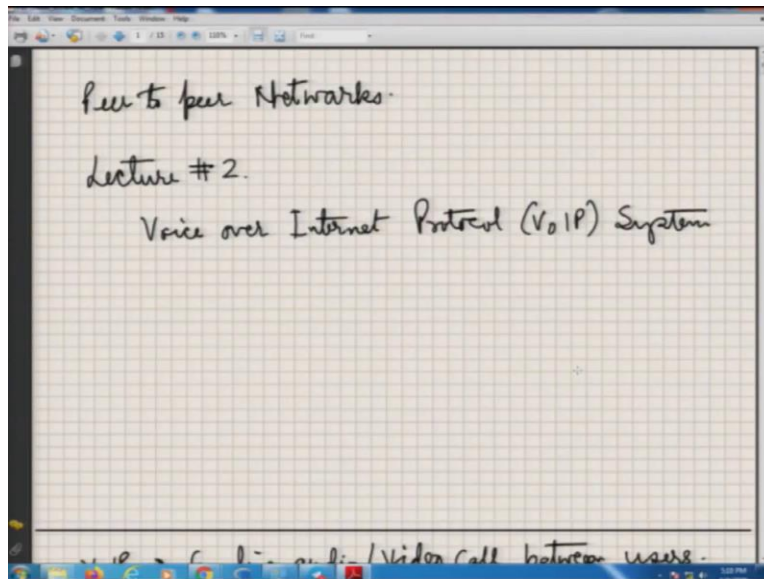 File Edit View Document Tools Window Help
1 / 15 118% Find
Peer to peer Networks.
Lecture # 2.
Voice over Internet Protocol (VoIP) System
audio/Video Call between users.
5:03 PM